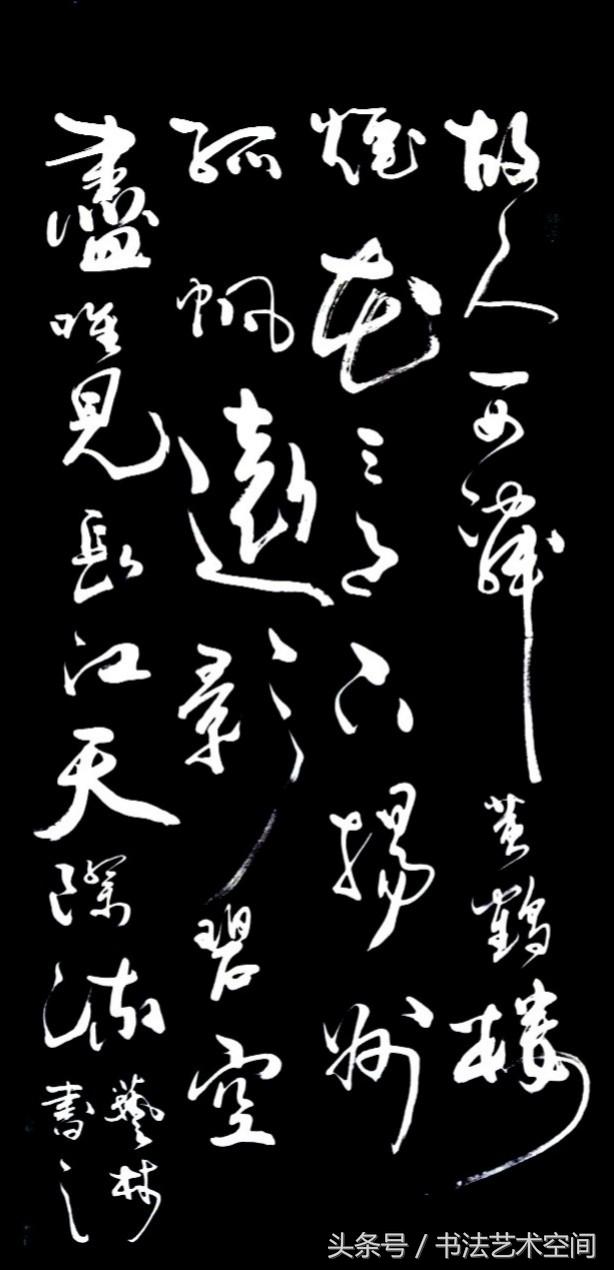 故人西辞黄鹤楼
烟花三月下扬州
孤帆遠影碧空
盡唯見長江天際流
藝林
書之
头条号 / 书法艺术空间